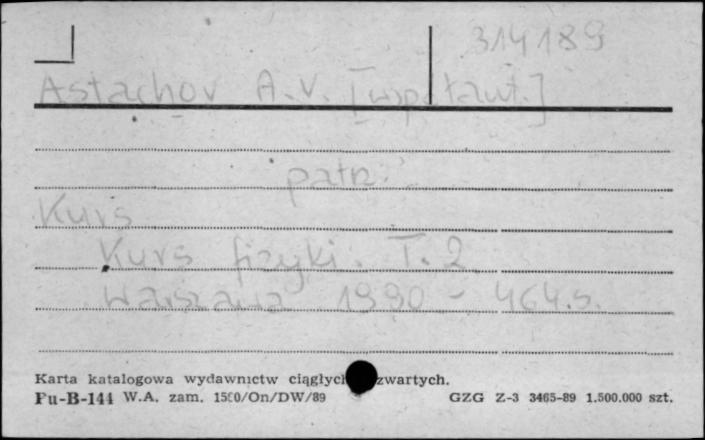 314189
Astachov A.V. [współaut.]
patrz:
Kurs
Kurs fizyki. T. 2
Warszawa 1990 - 464 s.
Karta katalogowa wydawnictw ciągłych zwartych.
Pu-B-144 W.A. zam. 1580/On/DW/89 GZG Z-3 3465-89 1.500.000 szt.